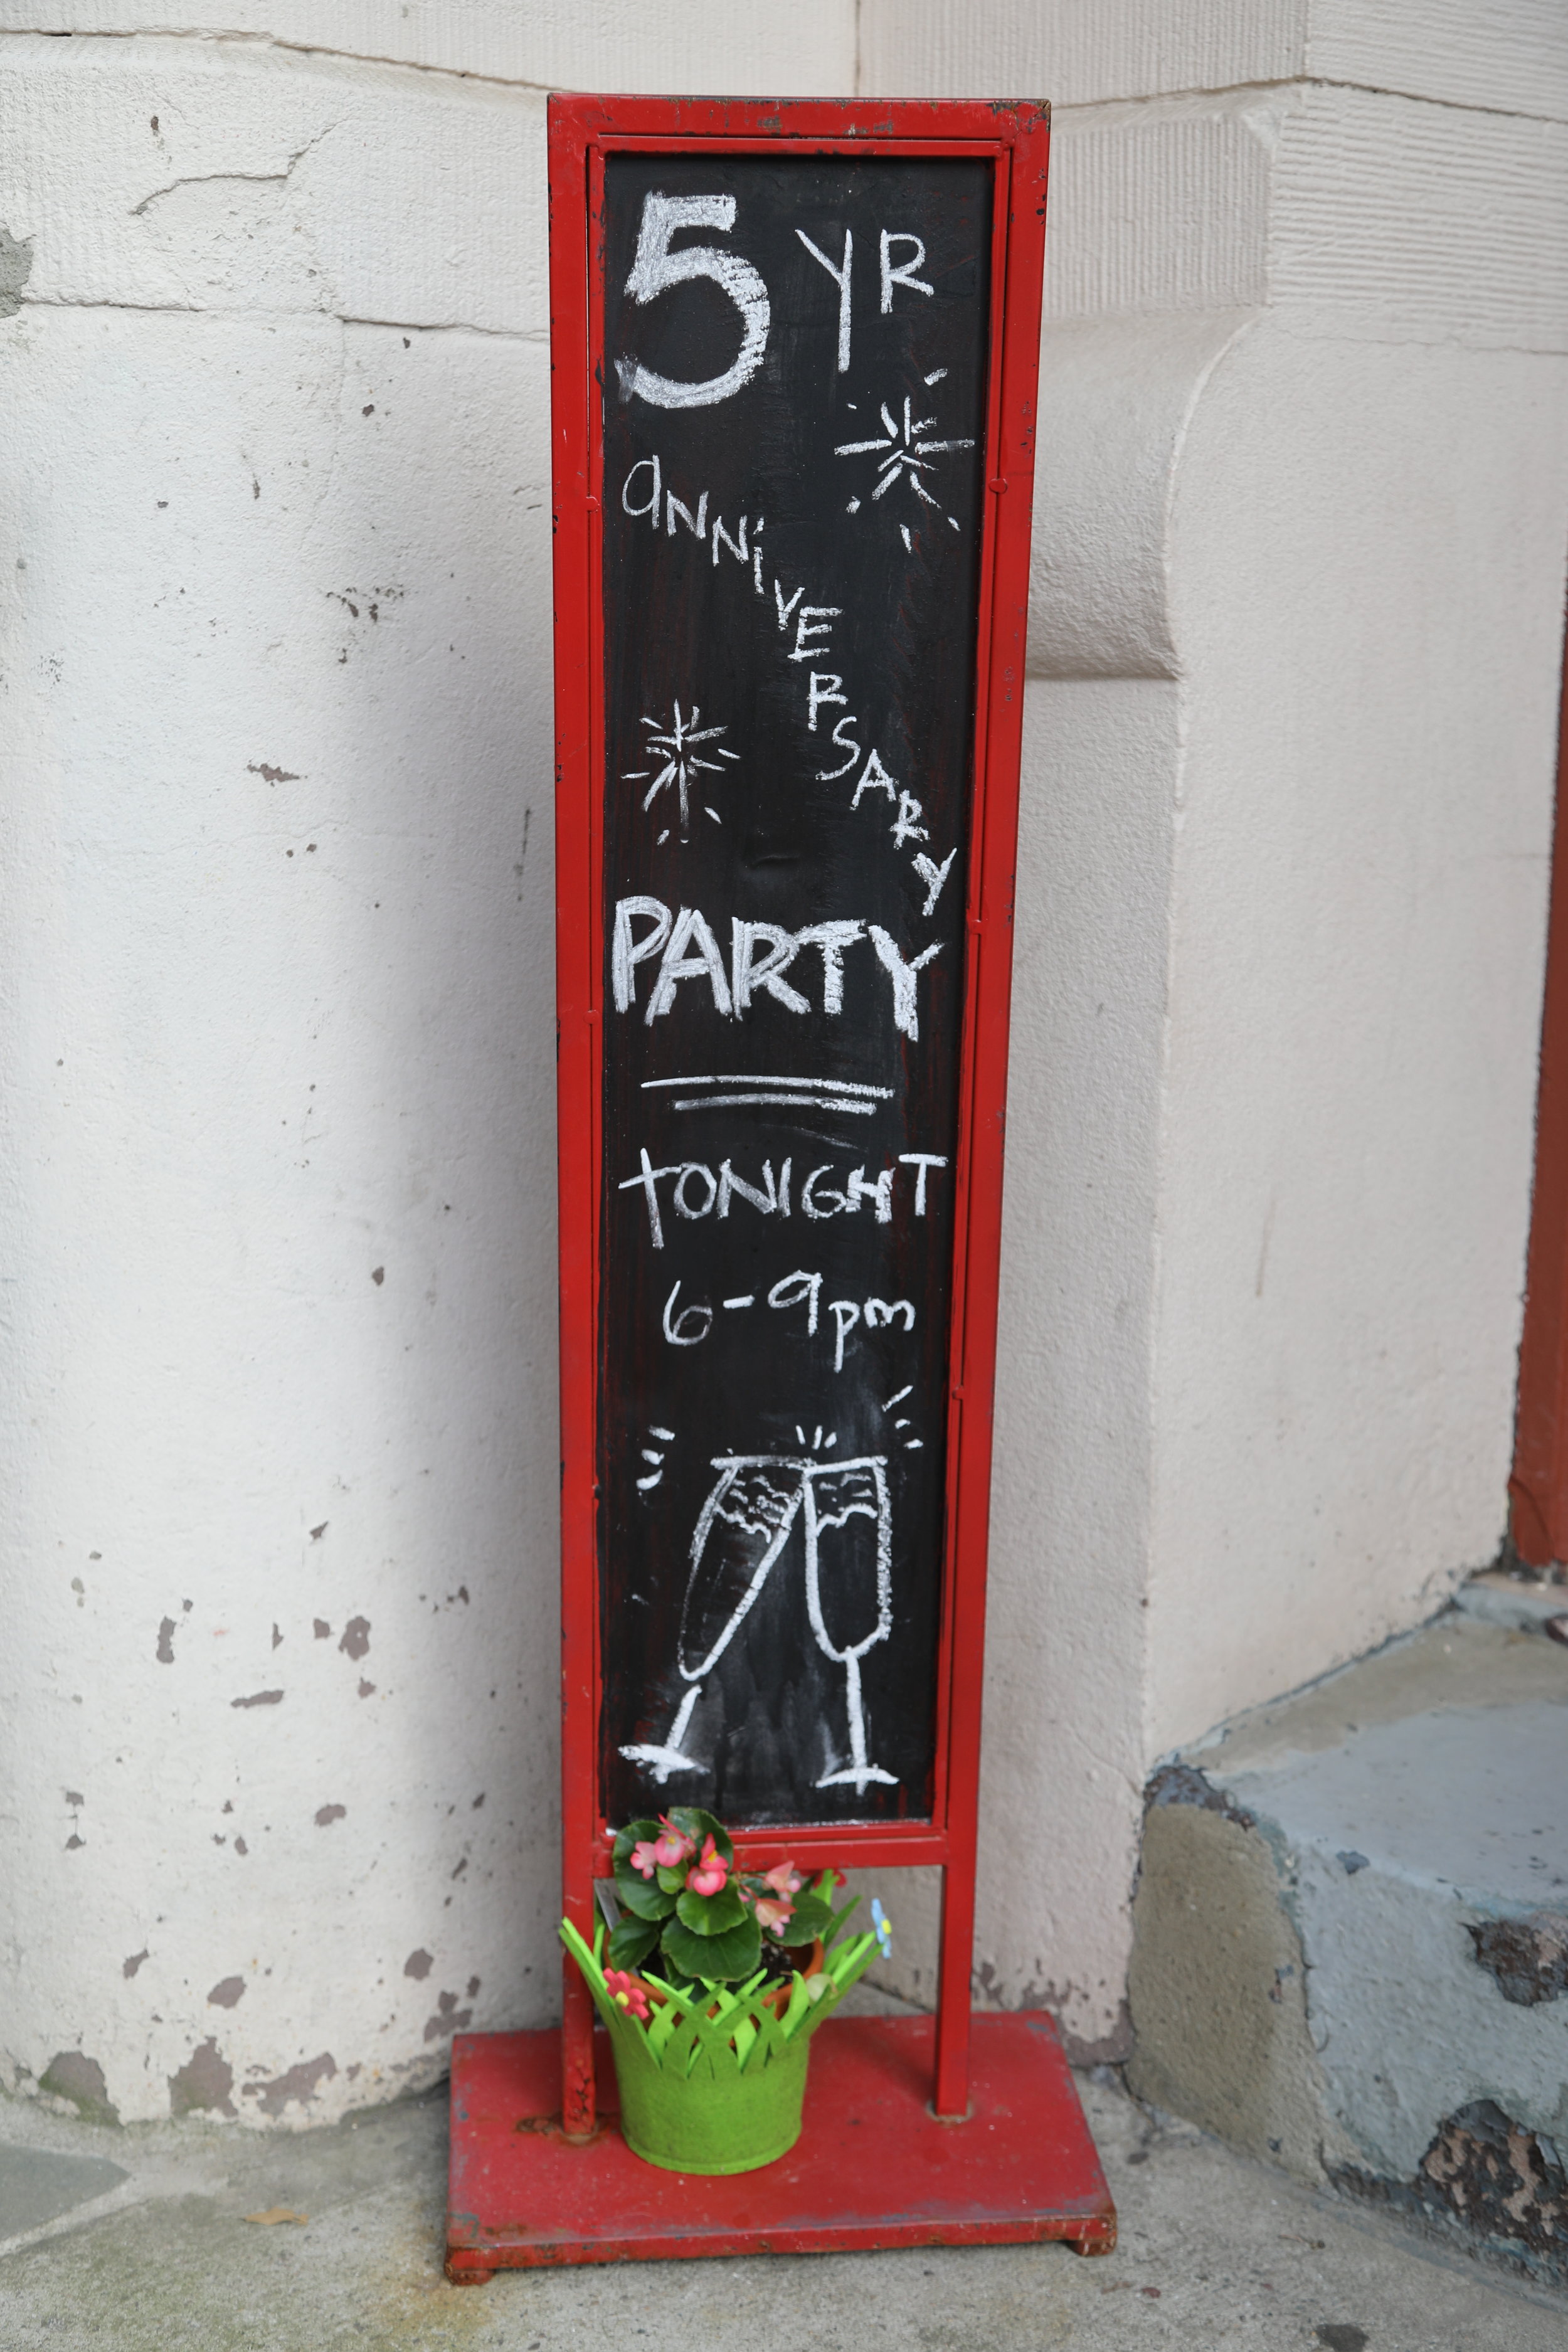 5 YR
aNNiVERSARY
PARTY
tONIGHT
6-9pm